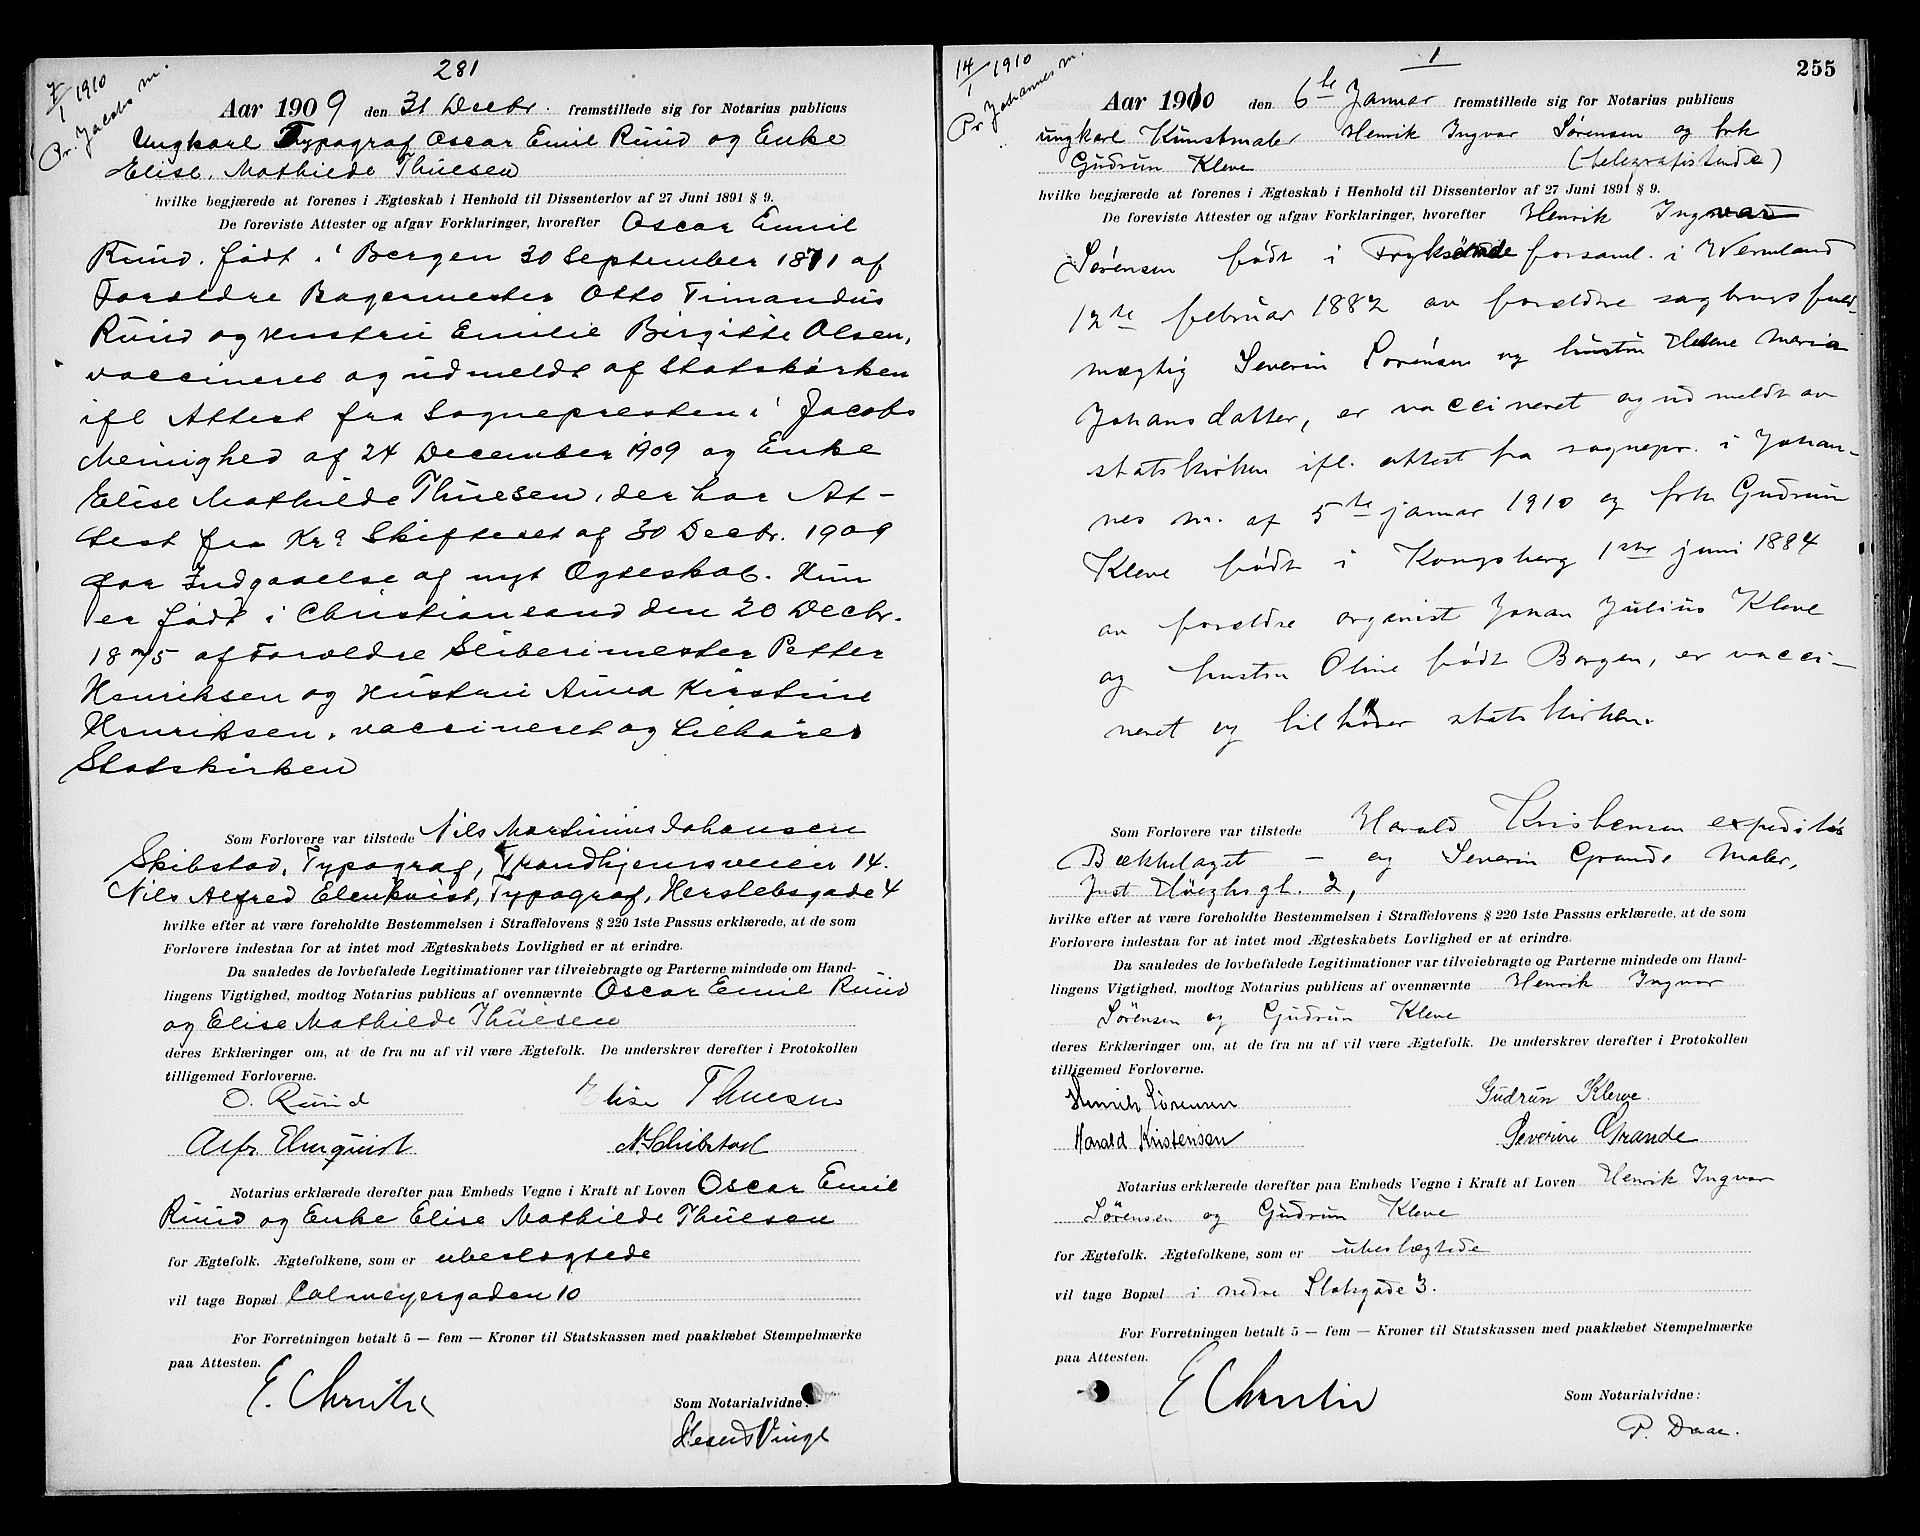 7/1 1910
Pr. Jacobs m.
281
Aar 1909 den 31 Decbr. fremstillede sig for Notarius publicus
Ungkarl Typograf Oscar Emil Ruud og Enke
Elise Mathilde Thuesen
hvilke begjærede at forenes i Ægteskab i Henhold til Dissenterlov af 27 Juni 1891 § 9.
De foreviste Attester og afgav Forklaringer, hvorefter Oscar Emil
Ruud. født i Bergen 30 September 1871 af
Forældre Bagermester Otto Timandus
Ruud og Hustru Emilie Birgitte Olsen,
vaccineret og udmeldt af Statskirken
ifl Attest fra Sognepresten i Jacobs
Menighed af 24 December 1909 og Enke
Elise Mathilde Thuesen, der har At-
test fra Kra Skifteret af 30 Decbr. 1909
for Indgaaelse af nyt Ægteskab. Hun
er født i Christiansand den 20 Decbr.
1875 af Forældre Sliberimester Petter
Henriksen og Hustru Anna Kirstine
Henriksen, vaccineret og tilhører
Statskirken
Som Forlovere var tilstede Nils Martinius Johansen
Skibstad, Typograf, Trondhjemsveien 14.
Nils Alfred Elmkvist, Typograf, Herslebsgade 4
hvilke efter at være foreholdte Bestemmelsen i Straffelovens § 220 1ste Passus erklærede, at de som
Forlovere indestaa for at intet mod Ægteskabets Lovlighed er at erindre.
Da saaledes de lovbefalede Legitimationer var tilveiebragte og Parterne mindede om Hand-
lingens Vigtighed, modtog Notarius publicus af ovennævnte Oscar Emil Ruud
og Elise Mathilde Thuesen
deres Erklæringer om, at de fra nu af vil være Ægtefolk. De underskrev derefter i Protokollen
tilligemed Forloverne.
O. Ruud Elise Thuesen
Alfr Elmquist N. Schibstad
Notarius erklærede derefter paa Embeds Vegne i Kraft af Loven Oscar Emil
Ruud og Enke Elise Mathilde Thuesen
for Ægtefolk. Ægtefolkene, som er ubeslægtede
vil tage Bopæl Calmeyergaden 10
For Forretningen betalt 5 — fem — Kroner til Statskassen med paaklæbet Stempelmærke
paa Attesten.
E. Christie
Som Notarialvidne:
14/1 1910
Pr Johannes m.
1
255
Aar 1910 den 6te Januar fremstillede sig for Notarius publicus
ungkarl Kunstmaler Henrik Ingvar Sørensen og frk
Gudrun Kleve (telegrafistinde)
hvilke begjærede at forenes i Ægteskab i Henhold til Dissenterlov af 27 Juni 1891 § 9.
De foreviste Attester og afgav Forklaringer, hvorefter Henrik Ingvar
Sørensen født i Fryksände forsaml. i Wermland
12te februar 1882 av forældre sagbrugsfuld-
mægtig Severin Sørensen og hustru Helene Maria
Johansdatter, er vaccineret og udmeldt av
statskirken ifl. attest fra sognepr. i Johan-
nes m. af 5te januar 1910 og frk Gudrun
Kleve født i Kongsberg 1ste juni 1884
av forældre organist Johan Julius Kleve
og hustru Oline født Borgen, er vacci-
neret og tilhører statskirken.
Som Forlovere var tilstede Harald Kristensen expeditør
Bækkelaget — og Severin Grande Maler,
Just Høeghs gt. 2,
hvilke efter at være foreholdte Bestemmelsen i Straffelovens § 220 1ste Passus erklærede, at de som
Forlovere indestaa for at intet mod Ægteskabets Lovlighed er at erindre.
Da saaledes de lovbefalede Legitimationer var tilveiebragte og Parterne mindede om Hand-
lingens Vigtighed, modtog Notarius publicus af ovennævnte Henrik Ingvar
Sørensen og Gudrun Kleve
deres Erklæringer om, at de fra nu af vil være Ægtefolk. De underskrev derefter i Protokollen
tilligemed Forloverne.
Henrik Sørensen Gudrun Kleve.
Harald Kristensen Severin Grande
Notarius erklærede derefter paa Embeds Vegne i Kraft af Loven Henrik Ingvar
Sørensen og Gudrun Kleve
for Ægtefolk. Ægtefolkene, som er ubeslægtede
vil tage Bopæl i nedre Slotsgade 3.
For Forretningen betalt 5 — fem — Kroner til Statskassen med paaklæbet Stempelmærke
paa Attesten.
E Christie
Som Notarialvidne:
P. Daae.